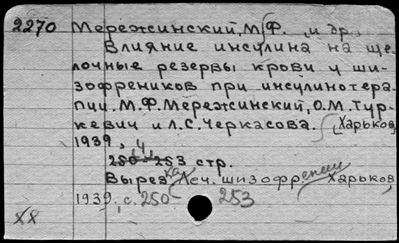 2270 Мережинский, М. Ф. и др.
Влияние инсулина на ще
лочные резервы крови у ши-
зофреников при инсулинотера-
пии. М.Ф.Мережинский, О.М.Тур-
кевич и Л.С.Черкасова. Харьков,
1939,
250-253 стр.
Вырезка Леч. шизофрении Харьков,
1939, с. 250-253
XX